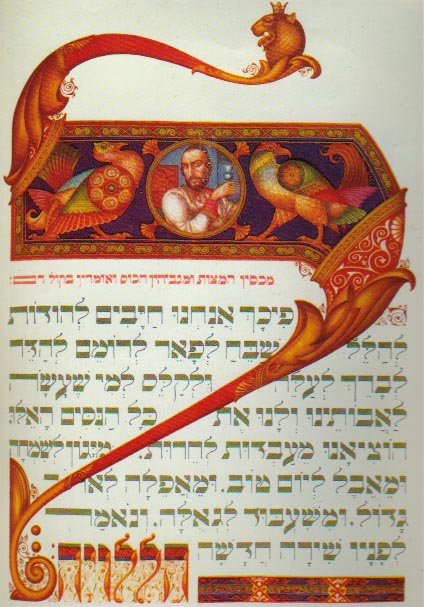 מכסין המצות ומגביהין הכוס ואומרין בקול רם:
לפיכך אנחנו חיבים להודות
להלל לשבח לפאר לרומם להדר
לברך לעלה ולקלס למי שעשה
לאבותינו ולנו את כל הנסים האלו
הוציאנו מעבדות לחרות. מיגון לשמחה
ומאבל ליום טוב. ומאפלה לאור
גדול. ומשעבוד לגאלה. ונאמר
לפניו שירה חדשה
הללויה